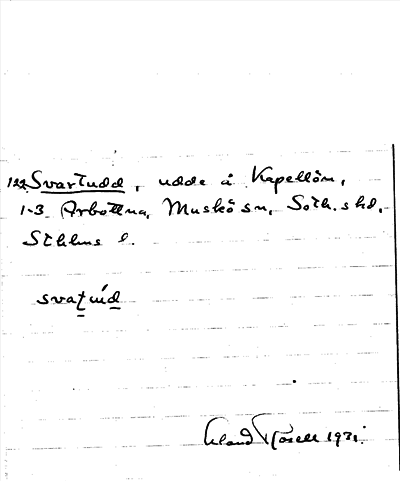 122. Svartudd, udde å Kapellön,
1-3 Arbottna, Muskö sn, Soth. shd,
Sthlms l.
svat̲úd̲
Rosell 1931.